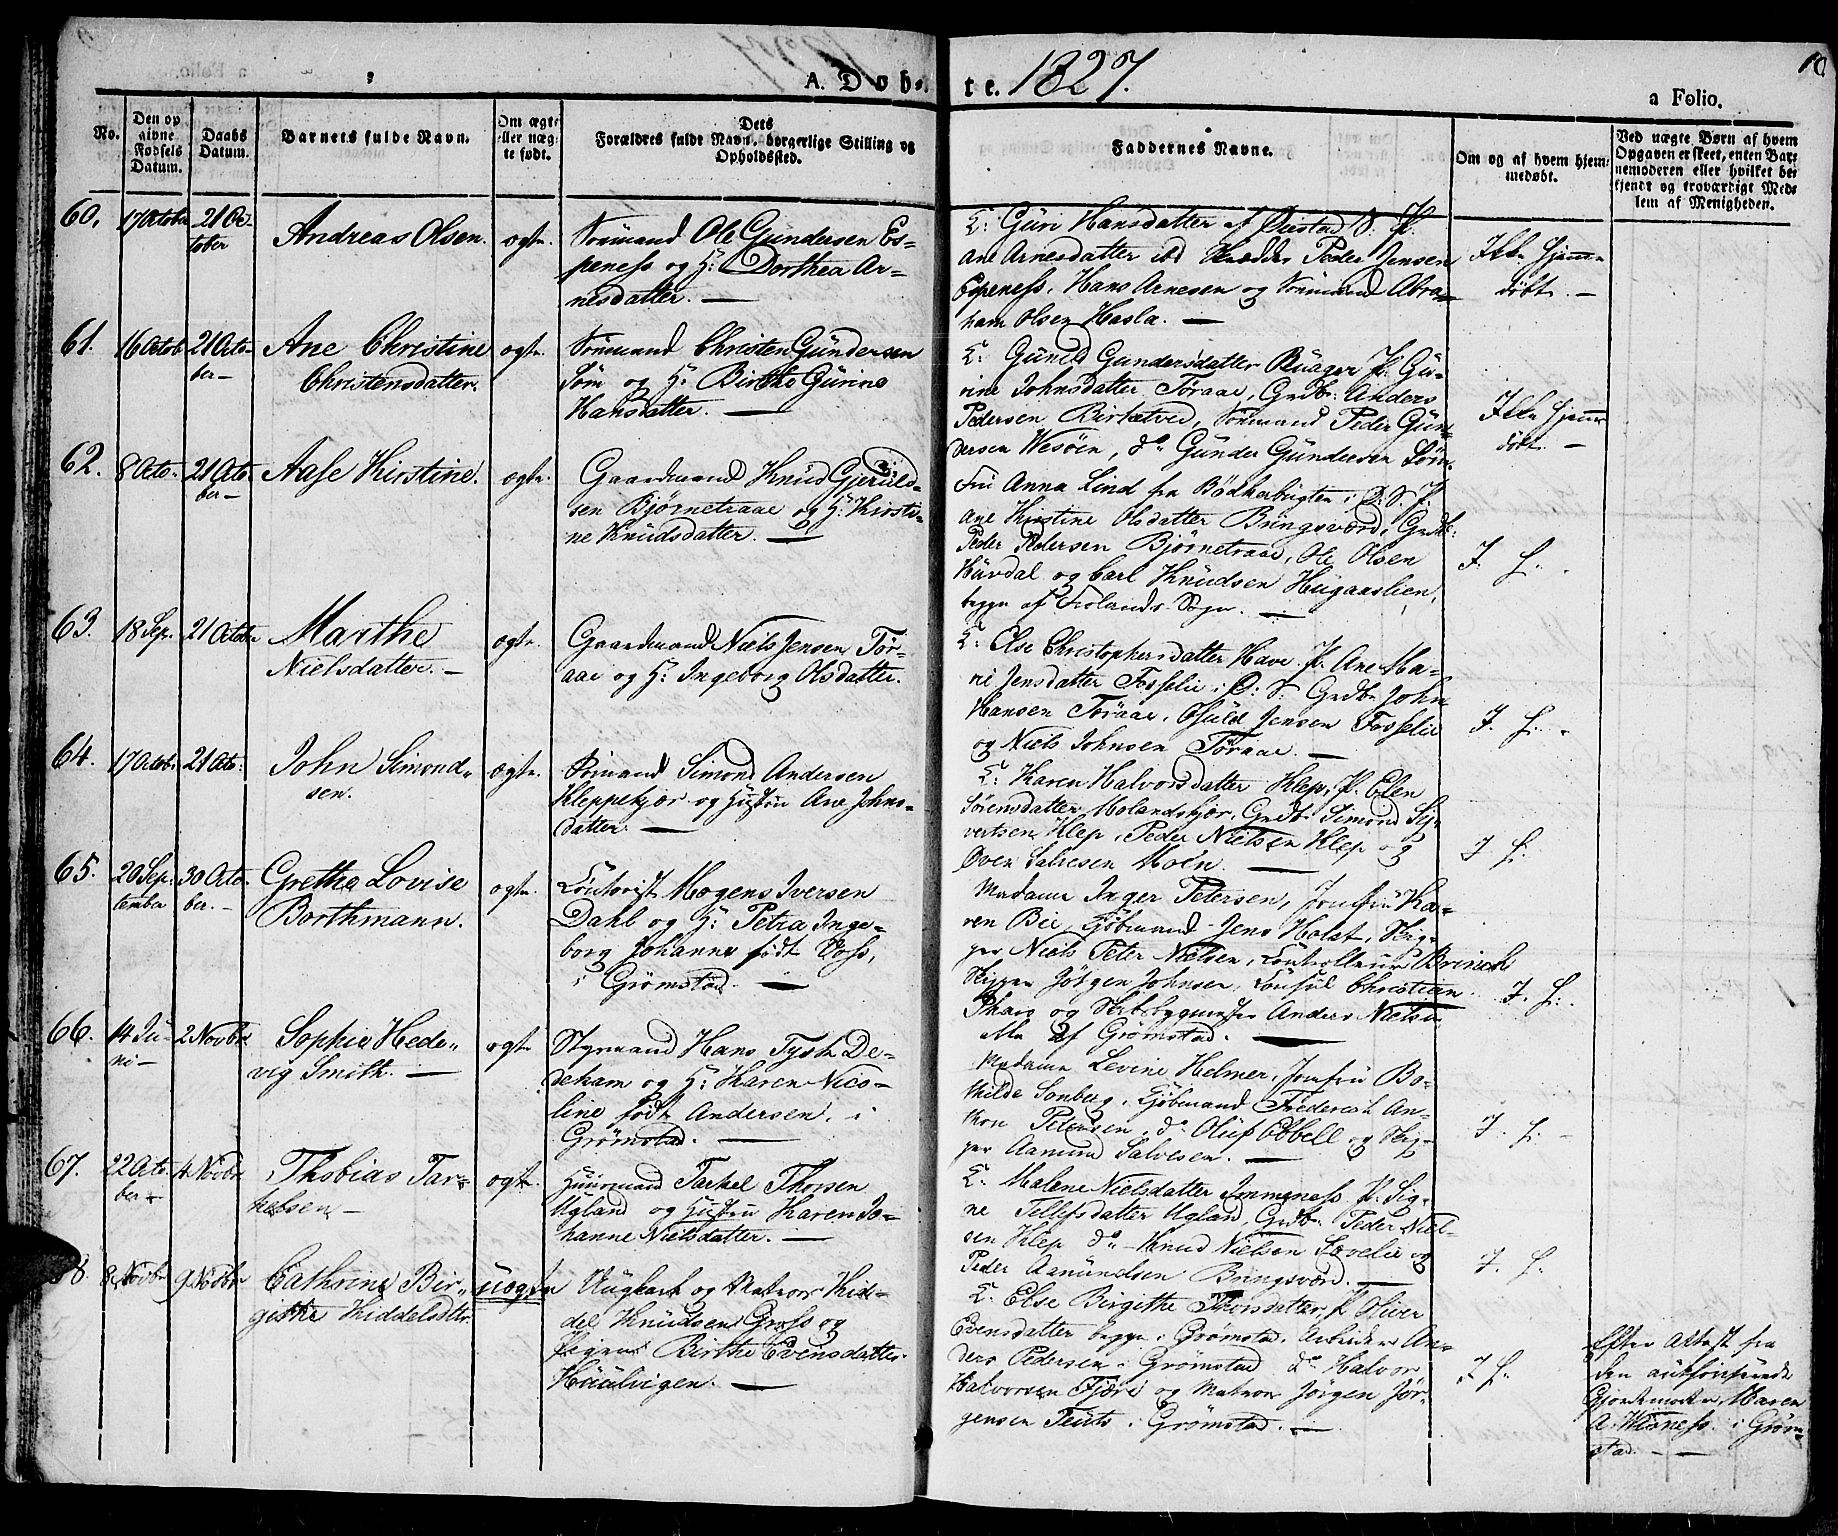 A. Døbte. 1827.
10
a Folio.
No.
Den opgivne Fødsels Datum.
Daabs Datum.
Barnets fulde Navn.
Om ægte eller uægte født.
Dets Forældres fulde Navn, borgerlige Stilling og Opholdssted.
Faddernes Navne.
Om og af hvem hjemmedøbt.
Ved uægte Børn af hvem Opgaven er skeet, enten Barnemoderen eller hvilket bekjendt og troværdigt Medlem af Menigheden.
60.
17 October
21 October
Andreas Olsen.
ægte.
Sømand Ole Gundersen Es-
peness og H: Dorthea Ar-
nesdatter. —
K: Guri Hansdatter af Øiestad S. P.
Ane Arnesdatter ibd Skrædder Peder Jensen
Espeness, Hans Arnesen og Sømand Abra-
ham Olsen Hasla. —
Ikke hjemme
døbt. —
61.
16 Octob
21 Octo-
ber —
Ane Christine
Christensdatter.
ægte.
Sømand Christen Gundersen
Søm og H: Birthe Gurine
Hansdatter. —
K: Gunild Gundersdatter Ruager P. Gu-
rine Johnsdatter Toraae, Grdbr: Anders
Pedersen Birketvet, Sømand Peder Gun-
dersen Wesøen, do Gunder Gundersen Søm.
Ikke hjemme
døbt. —
62.
8 Octo.
21 Octo
ber —
Aase Kirstine.
ægte.
Gaardmand Knud Gjeruld-
sen Bjørnetraae og H: Kirsti-
ne Knudsdatter. —
Fru Anna Lind fra Bødkerbugten i Ø: S. P.
Ane Kirstine Olsdatter Bringsværd, Grdbr:
Peder Pedersen Bjørnetraae, Ole Olsen
Hurdal og Carl Knudsen Hugaaslien,
begge af Frolands Sogn. —
I. H.
63.
18 Sep.
21 Octobr
Marthe
Nielsdatter. —
ægte.
Gaardmand Niels Jensen Tør-
aae og H: Ingeborg Olsdatter.
K: Else Christophersdatter Have. P. Ane Ma-
rie Jensdatter Fosselie i Ø: S: Grdbr John
Hansen Toraae, Osuld Jensen Fosselie
og Niels Johnsen Toraae. —
I. H.
64.
17 Octob.
21 Octo:
John Simond-
sen.
ægte.
Sømand Simond Andersen
Kleppekjær og Hustru Ane Johns-
datter. —
K: Karen Halvorsdatter Klep, P. Elen
Sørensdatter Molandskjær, Grdbr Simond Sy-
vertsen Klep, Peder Nielsen Klep og
Oven Salvesen Moen. —
I H.
65.
20 Sep:
tember
30 Octo-
ber. —
Grethe Lovise
Borthmann.
ægte.
Contorist Mogens Iversen
Dahl og H: Petra Inge-
borg Johanne født Voss,
i Grømstad. —
Madame Inger Petersen, Jomfru Ka-
ren Bie, Kjøbmand Jens Holst, Skip-
per Niels Peter Nielsen, Controlleur Brinch
Skipper Jørgen Johnsen, Consul Christian
Pharo og Skibsbygmester Anders Nielsen
alle af Grømstad. —
I. H.
66.
14 Ju-
ni —
2 Novbr.
Sophie Hede-
vig Smith. —
ægte
Styrmand Hans Tyck De-
dekam og H: Karen Nico-
line født Andersen. i
Grømstad. —
Madame Levine Helmer, Jomfru Bo-
thilde Sonberg, Kjøbmand Frederich An-
thon Petersen, do Oluf Ebbell og Skip-
per Aamund Salvesen. —
I. H. —
67.
22 Octo
ber —
4 Novbr
Thobias Tar-
kelsen —
ægte.
Huusmand Tarkel Thorsen
Ugland og Hustru Karen Jo-
hanne Nielsdatter. —
K: Malene Nielsdatter Immeness. P. Sig-
ne Tellefsdatter Ugland, Grdbr Peder Niel-
sen Klep do — Knud Nielsen Løvelie og
Peder Aamundsen Bringsværd. —
I. H.
68.
8 Novbr
9 Novbr
Cathrine Bir-
githe Kiddelsdtr.
uægte
Ungkarl og Matros Kid-
del Knudsen Groß og
Pigen Birthe Evensdatter
Huulvigen. —
K: Else Birgithe Thorsdatter, P Oliver
Evensdatter begge i Grømstad, Arbeider An-
ders Pedersen i Grømstad do Halvor
Halvorsen Fjære og Matros Jørgen Jør-
gensen Teuts i Grømstad. —
I H.
Efter Attest fra
den authoriserede
Gjordemoder Maren
A. Wibness i Grøm-
stad. —